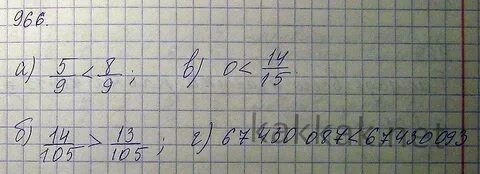 966.
а) 5/9 < 8/9 ; в) 0 < 14/15.
б) 14/105 > 13/105 ; г) 67430087 < 67430093
kakkak.net